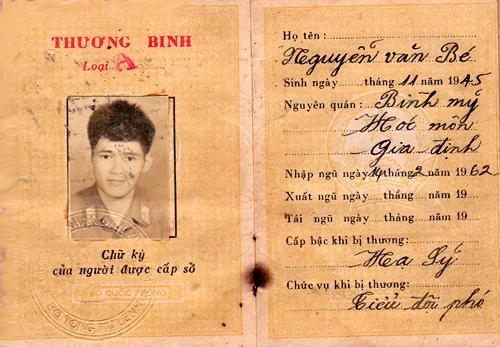 THƯƠNG BINH
Loại A
Chữ ký
của người được cấp sổ
Họ tên :
Nguyễn văn Bé
Sinh ngày ...... tháng 11 năm 1945
Nguyên quán : Bình mỹ
Hóc môn
Gia định
Nhập ngũ ngày 14 tháng 2 năm 1962
Xuất ngũ ngày ...... tháng ...... năm 19 ...
Tái ngũ ngày ...... tháng ...... năm 19 ...
Cấp bậc khi bị thương:
Hạ Sỹ
Chức vụ khi bị thương:
Tiểu đội phó